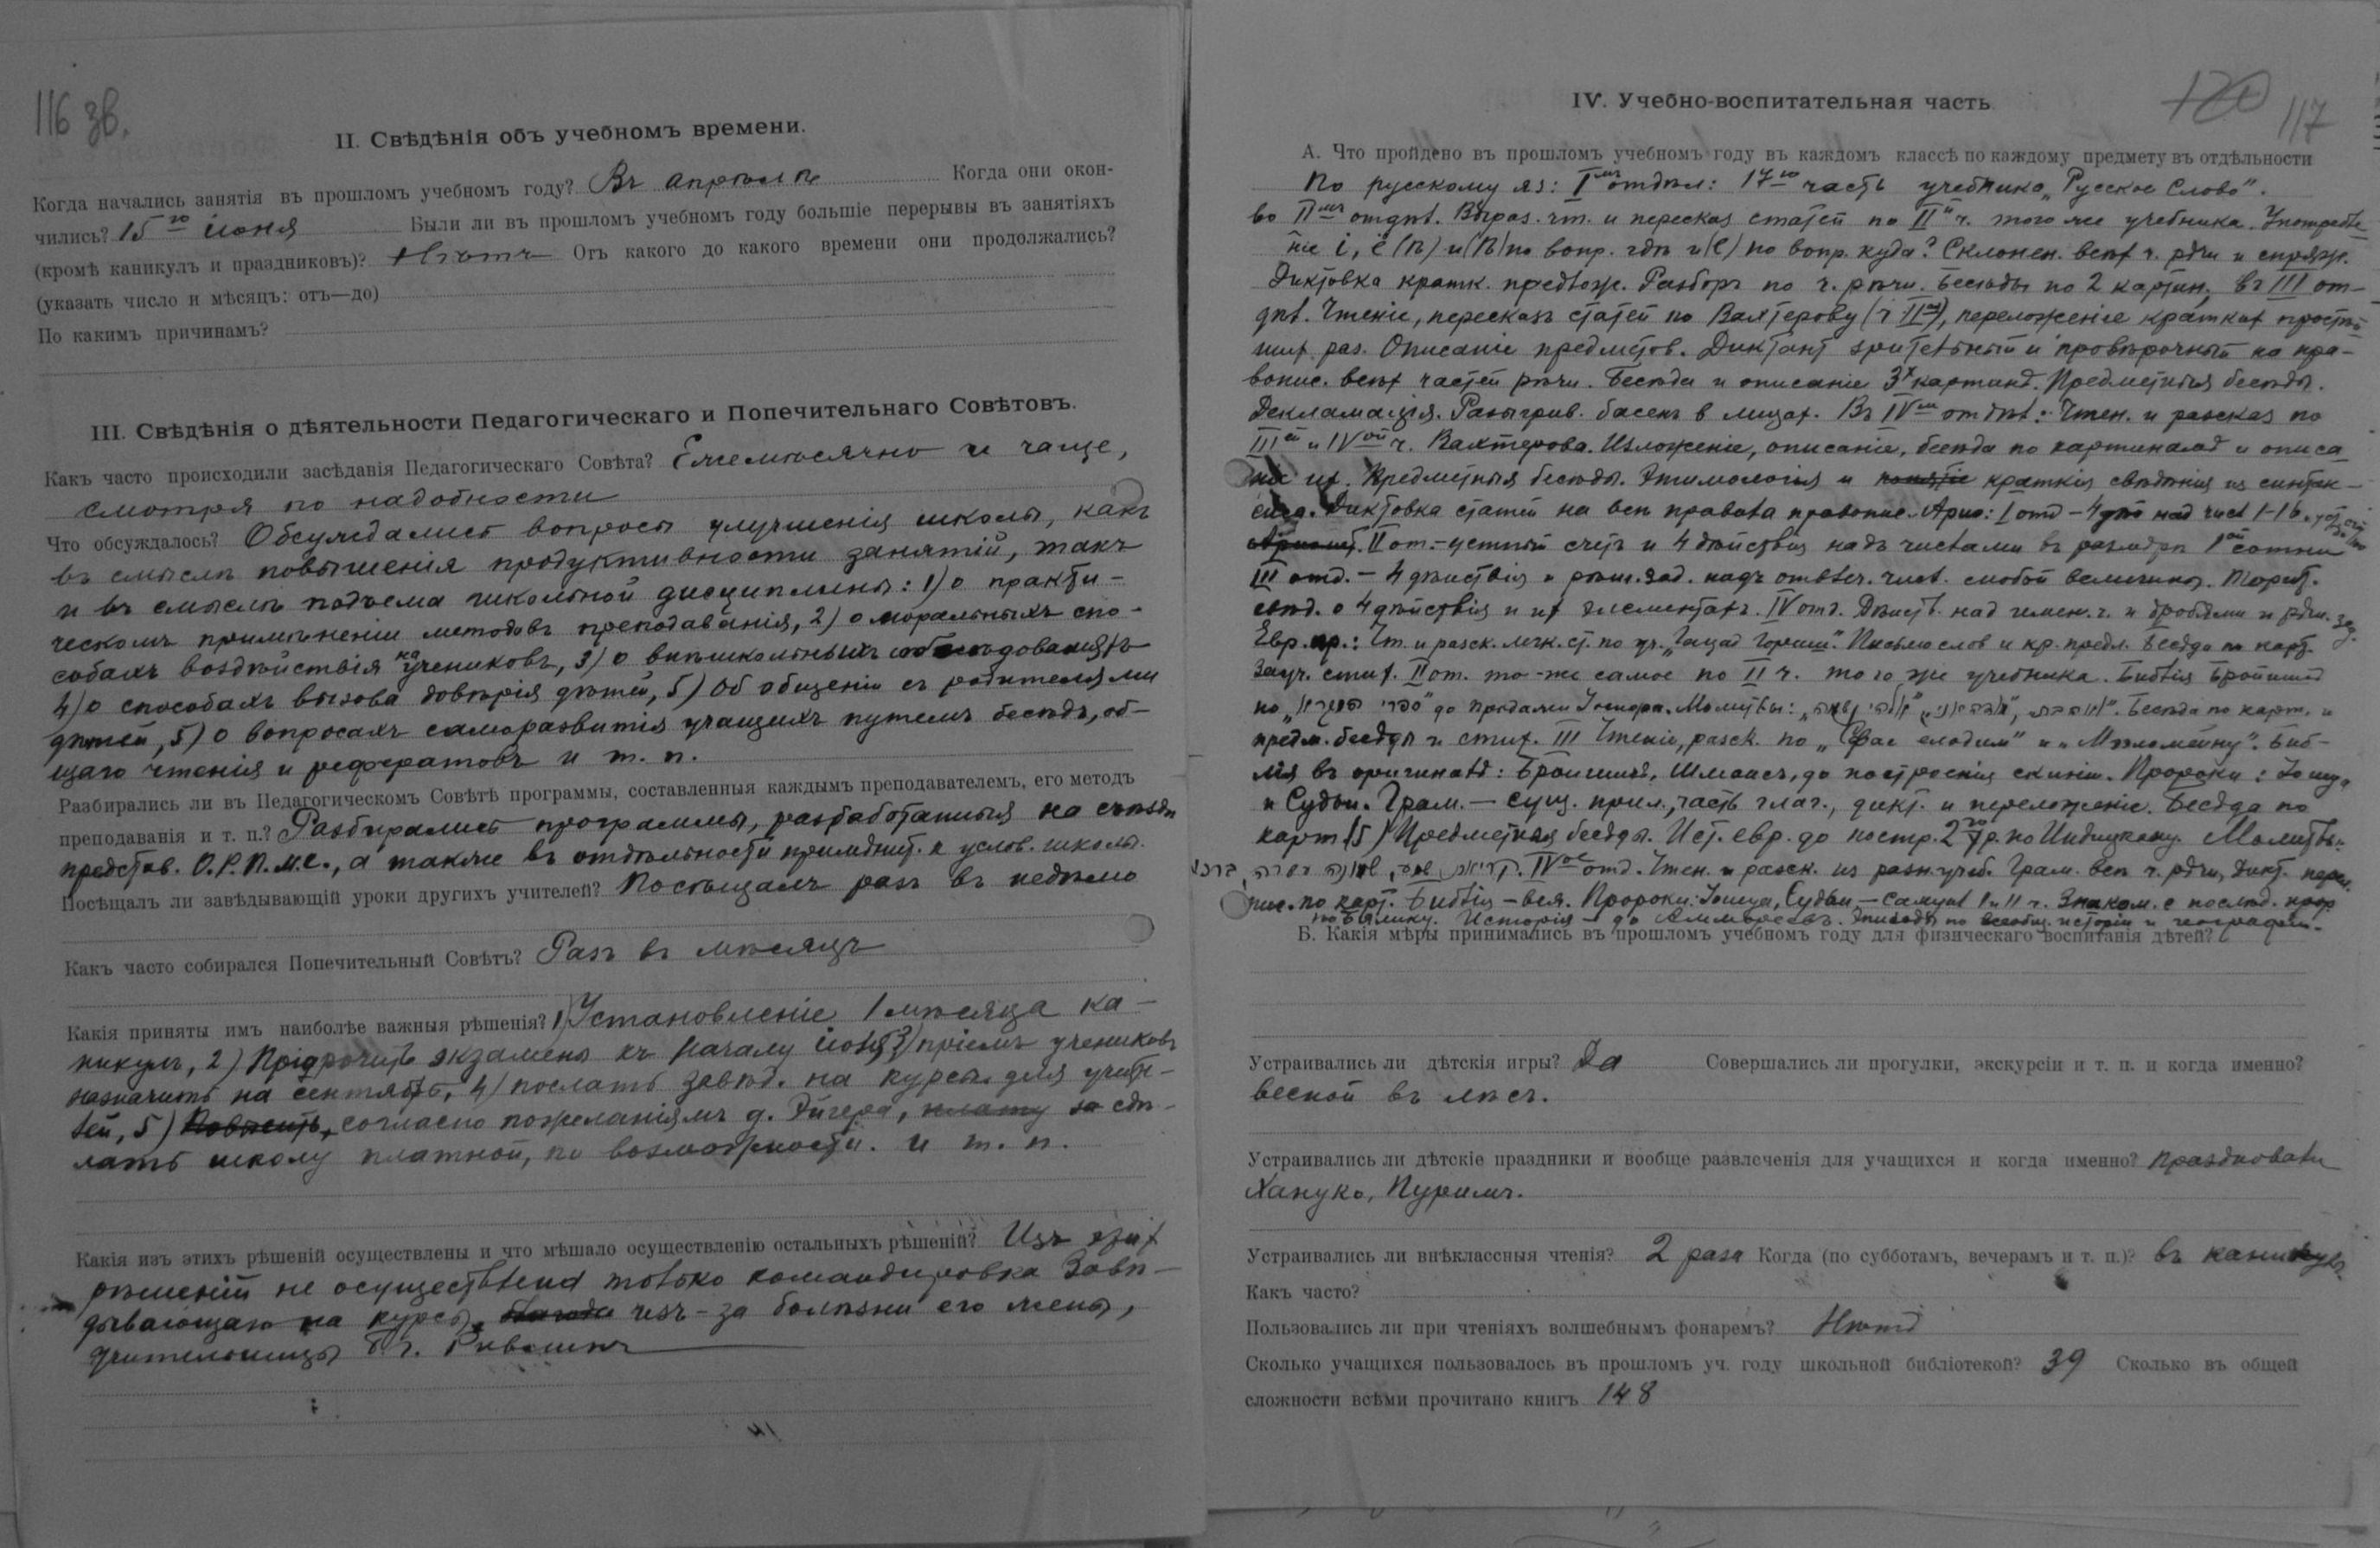 116 зв.
II. Свѣдѣнія объ учебномъ времени.
Когда начались занятія въ прошломъ учебномъ году? Въ апрѣлѣ Когда они окон-
чились? 15го іюня Были ли въ прошломъ учебномъ году большіе перерывы въ занятіяхъ
(кромѣ каникулъ и праздниковъ)? Нѣтъ Отъ какого до какого времени они продолжались?
(указать число и мѣсяцъ: отъ—до)
По какимъ причинамъ?
III. Свѣдѣнія о дѣятельности Педагогическаго и Попечительнаго Совѣтовъ.
Какъ часто происходили засѣданія Педагогическаго Совѣта? Ежемѣсячно и чаще,
смотря по надобности
Что обсуждалось? Обсуждались вопросы улучшенія школы, какъ
въ смыслѣ повышенія продуктивности занятій, такъ
и въ смыслѣ подъема школьной дисциплины: 1) о практи-
ческомъ примѣненіи методовъ преподаванія, 2) о моральныхъ спо-
собахъ воздѣйствія на учениковъ, 3) о внѣшкольныхъ
4) о способахъ вызова довѣрія дѣтей, 5) Об общеніи съ родителями
дѣтей, 5) о вопросахъ саморазвитія учащихъ путемъ бесѣдъ, об-
щаго чтенія и рефератовъ и т. п.
Разбирались ли въ Педагогическомъ Совѣтѣ программы, составленныя каждымъ преподавателемъ, его методъ
преподаванія и т. п.? Разбирались программы, разработанныя на съѣздѣ
представ. О.Р.П.М.Е., а также въ отдѣльности к услов. школы.
Посѣщалъ ли завѣдывающій уроки другихъ учителей? Посѣщалъ разъ въ недѣлю
Какъ часто собирался Попечительный Совѣтъ? Разъ въ мѣсяцъ
Какія приняты имъ наиболѣе важныя рѣшенія? 1) Установленіе 1 мѣсяца ка-
никулъ, 2) экзамены къ началу іюня, 3) пріемъ учениковъ
назначить на сентябрь, 4) послать завѣд. на курсы для учите-
лей, 5) согласно пожеланіямъ г. за сдѣ-
лать школу платной, по возможности. и т. п.
Какія изъ этихъ рѣшеній осуществлены и что мѣшало осуществленію остальныхъ рѣшеній? Изъ этих
рѣшеній не осуществлена только командировка Завѣ-
дывающаго на курсы, изъ-за болѣзни его жены,
учительницы
IV. Учебно-воспитательная часть
120 117
А. Что пройдено въ прошломъ учебномъ году въ каждомъ классѣ по каждому предмету въ отдѣльности
По русскому яз: I отдѣл: часть учебника „Русское Слово".
во II отдѣл. Выраз. чт. и пересказ статей по II ч. того же учебника. Употребле-
ніе і, ѣ по вопр. гдѣ и (е) по вопр. куда? Склонен. всѣх ч. рѣчи и спряж.
Диктовка кратк. предлож. Разборъ по ч. рѣчи. Бесѣды по 2 картин., въ III от-
дѣл. Чтеніе, пересказъ статей по Вахтерову, переложеніе кратких
раз. Описаніе предметов. Диктант зрительный и провѣрочный на пра-
вопис. всѣх частей рѣчи. Бесѣды и описаніе 3х картинъ. Предметныя бесѣды.
Декламація. Разыгрив. басенъ в лицах. Въ IV отдѣл: Чтен. и разсказ по
III и IVой ч. Вахтерова. Изложеніе, описаніе, бесѣда по картинамъ и описа
ніе их. Предметныя бесѣды. Этимологія и краткія свѣдѣнія из синтак-
сиса. Диктовка статей на всѣ правила правопис.
II от. - устный счетъ и 4 дѣйствія надъ числами въ предѣлѣ 1ой сотни
III отд. - 4 дѣйствія и рѣш. зад. надъ отвлеч. числ. любой величины. Теорет.
свѣд. о 4 дѣйствіях и их элементахъ. IV отд. Дѣйств. над имен. ч. и дробями и рѣш. зад.
Евр. пр.: Чт. и разск. легк. ст. по уч. Письмо слов и кр. предл. Бесѣда по карт.
Зауч. стих. II от. то-же самое по II ч. того же учебника. Библія
предм. бесѣды и стих. III Чтеніе, разск. по Биб-
лія въ оригиналѣ: до построенія скиніи. Пророки:
и Судьи. Грам. — сущ. прил., часть глаг., дикт. и переложеніе. Бесѣда по
карт (5) Предметная бесѣды. Ист. евр. до постр. 2го Молитвы:
IV отд. Чтен. и разск. из разн. учеб. Грам. всѣ ч. рѣчи, дикт.
по карт. Библія - вся. Пророки: Судьи, — Самуил I и II ч. Знаком. с послѣд. прор.
по Бялику. Исторія - до Эпизоды по всеобщ. исторіи и географіи.
Б. Какія мѣры принимались въ прошломъ учебномъ году для физическаго воспитанія дѣтей?
Устраивались ли дѣтскія игры? Да Совершались ли прогулки, экскурсіи и т. п. и когда именно?
весной въ лѣсъ.
Устраивались ли дѣтскіе праздники и вообще развлеченія для учащихся и когда именно? праздновали
Хануко, Пуримъ.
Устраивались ли внѣклассныя чтенія? 2 раза Когда (по субботамъ, вечерамъ и т. п.)? въ каникулы
Какъ часто?
Пользовались ли при чтеніяхъ волшебнымъ фонаремъ? Нѣтъ
Сколько учащихся пользовалось въ прошломъ уч. году школьной библіотекой? 39 Сколько въ общей
сложности всѣми прочитано книгъ 148